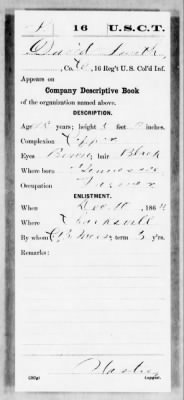 S | 16 | U.S.C.T.
David Smith
, Co. , 16 Reg't U. S. Col'd Inf.
Appears on
Company Descriptive Book
of the organization named above.
DESCRIPTION.
Age years; height 5 feet inches.
Complexion Copper
Eyes Brown; hair Black
Where born Tennessee
Occupation Farmer
ENLISTMENT.
When Dec 10, 186
Where Clarksville
By whom ; term 3 y'rs.
Remarks:
(383g) Copyist.